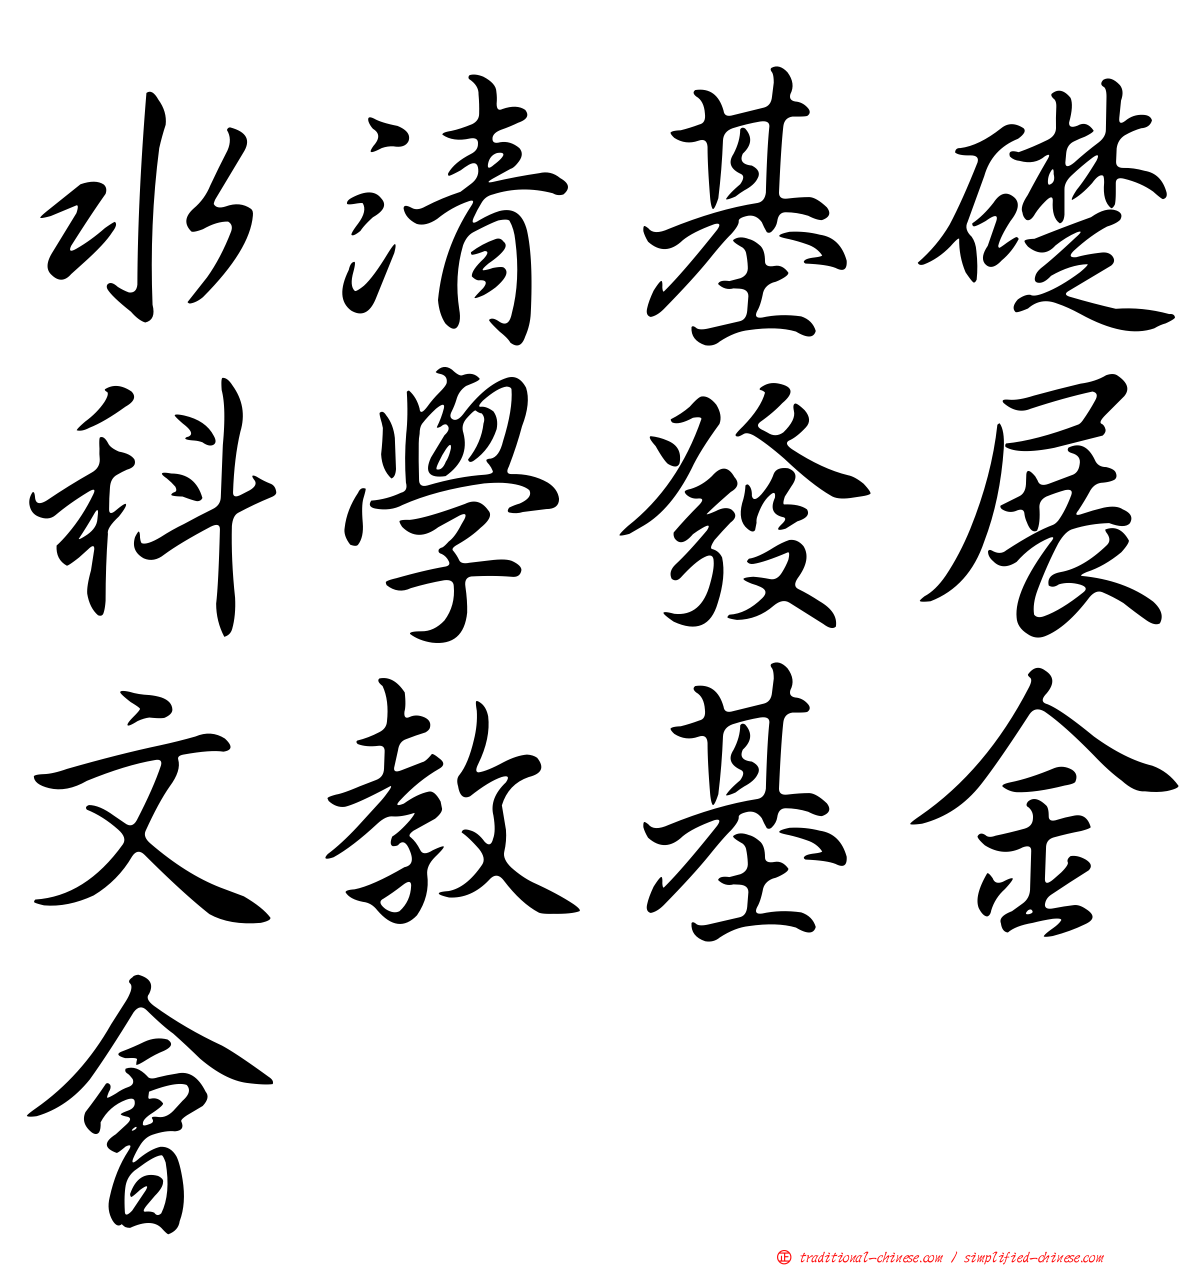 水清基礎
科學發展
文教基金
會
㊣ traditional-chinese.com / simplified-chinese.com